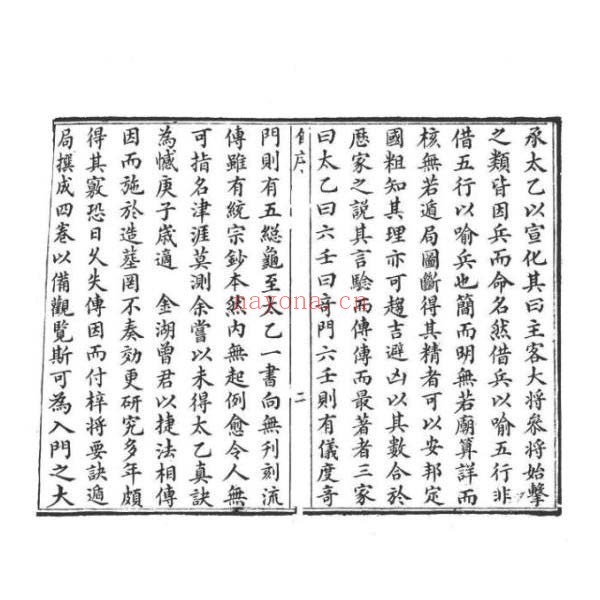 承太乙以宣化其曰主客大將叅將始擊
之類皆因兵而命名然借兵以喻五行非
借五行以喻兵也簡而明無若廟算詳而
核無若遁局圖斷得其精者可以安邦定
國粗知其理亦可趨吉避凶以其數合於
歷家之說其言驗而傳傳而最著者三家
曰太乙曰六壬曰竒門六壬則有儀度竒
自序
二
門則有五總龜至太乙一書向無刊刻流
傳雖有統宗鈔本然內無起例愈令人無
可指名津涯莫測余嘗以未得太乙真訣
為憾庚子歲適 金湖曾君以捷法相傳
因而施於造塟罔不奏効更研究多年頗
得其竅恐日久失傳因而付梓將要訣遁
局撰成四卷以備觀覽斯可為入門之大
nayona.cn